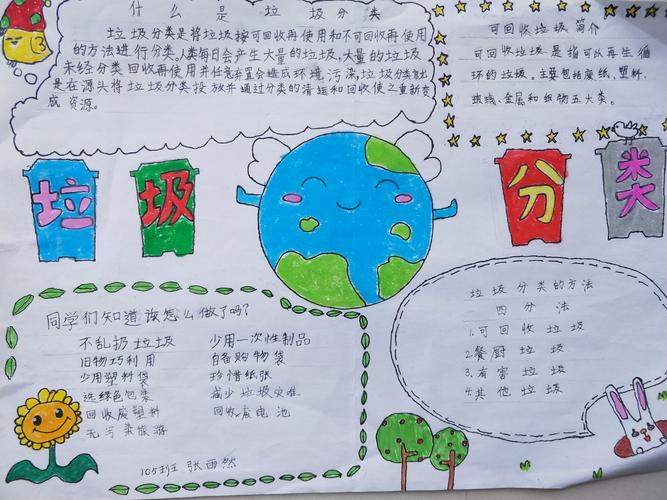 什么是垃圾分类
垃圾分类是将垃圾按可回收再使用和不可回收再使用
的方法进行分类。人类每日会产生大量的垃圾，大量的垃圾
未经分类回收再使用并任意弃置会造成环境污染，垃圾分类就
是在源头将垃圾分类投放并通过分类的清运和回收使之重新变
成资源。
可回收垃圾简介
可回收垃圾是指可以再生循
环的垃圾。主要包括废纸、塑料、
玻璃、金属和织物五大类。
垃圾分类
同学们知道该怎么做了吗？
不乱扔垃圾 少用一次性制品
旧物巧利用 自备购物袋
少用塑料袋 珍惜纸张
选绿色包装 减少垃圾灾难
回收废塑料 回收废电池
无污染旅游
105班 张雨然
垃圾分类的方法
四分法
1.可回收垃圾
2.餐厨垃圾
3.有害垃圾
4.其他垃圾